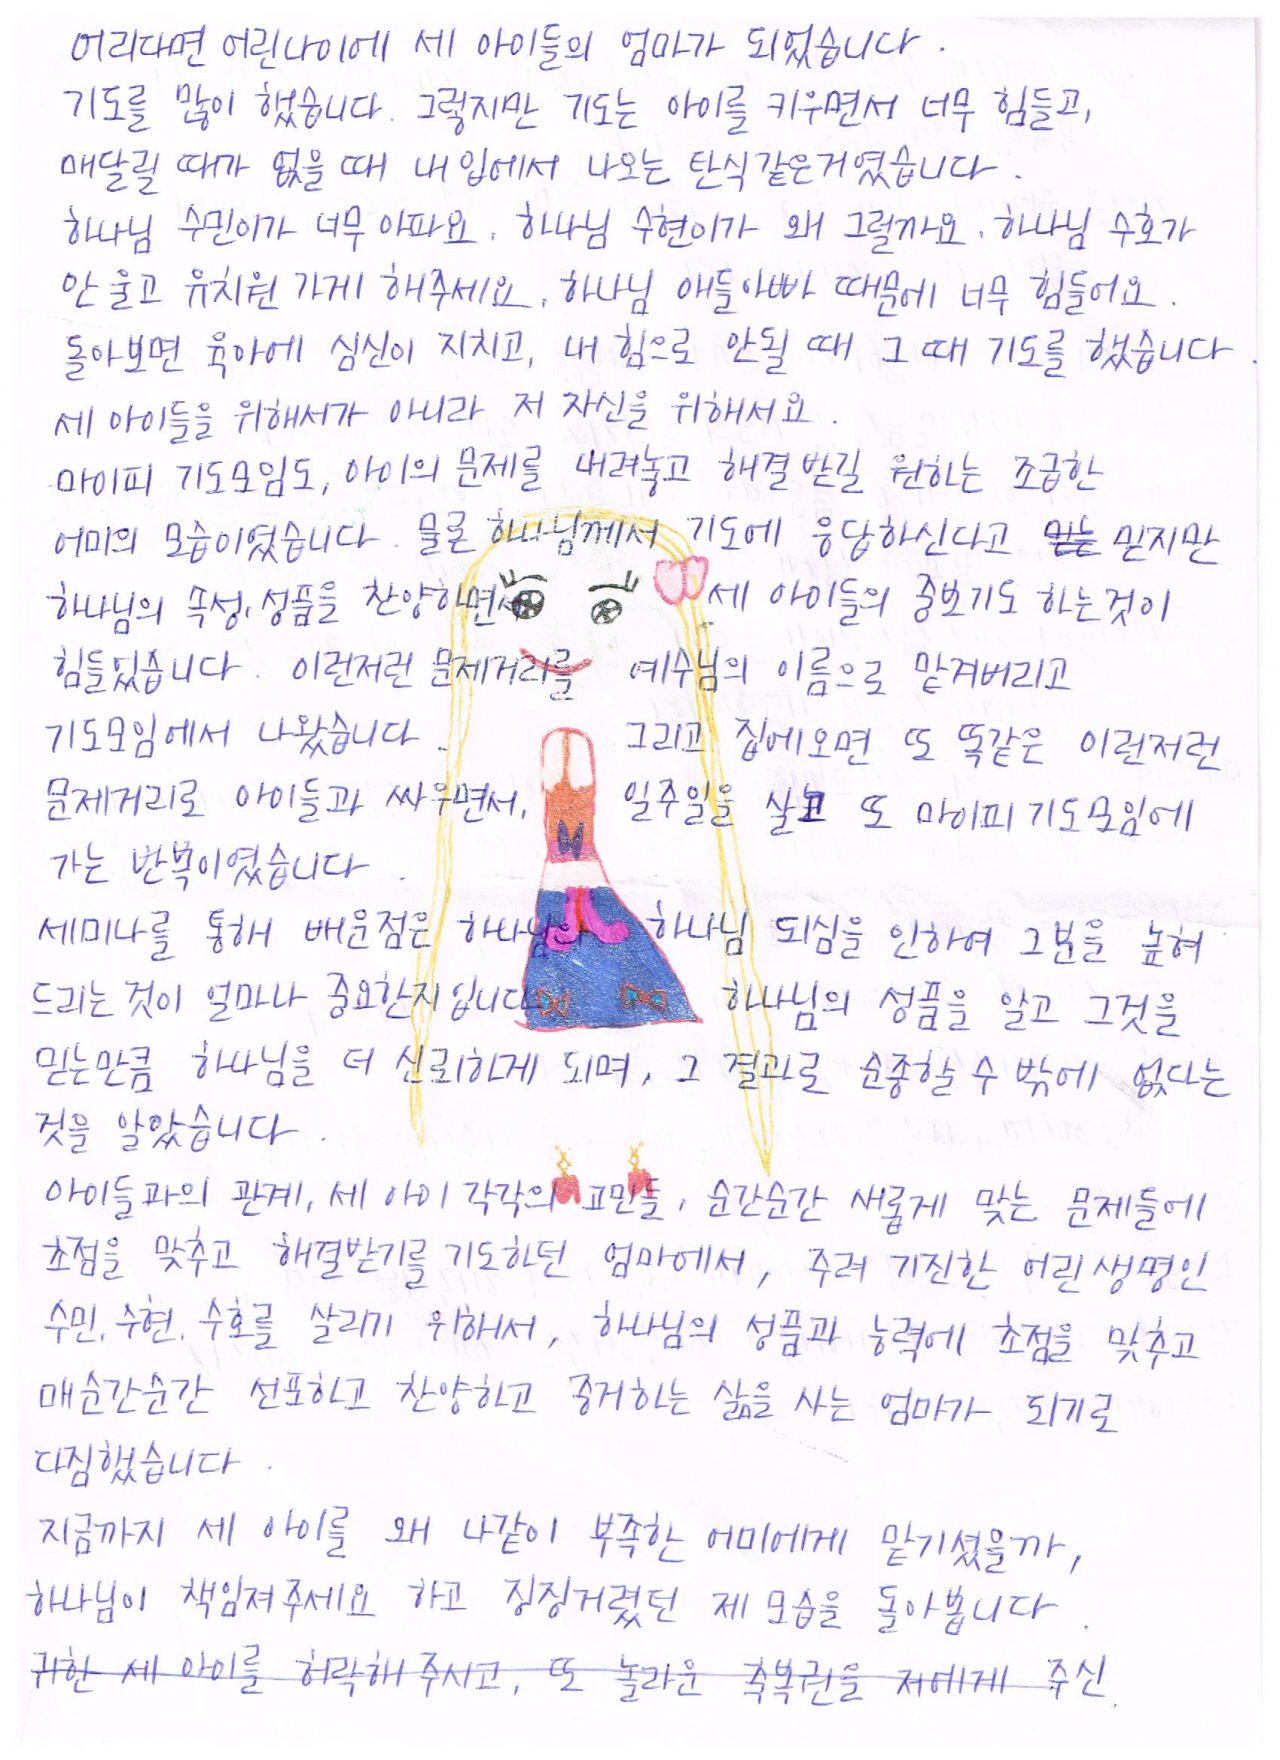 어리다면 어린나이에 세 아이들의 엄마가 되었습니다.
기도를 많이 했습니다. 그렇지만 기도는 아이를 키우면서 너무 힘들고,
매달릴 때가 없을 때 내 입에서 나오는 탄식같은거였습니다.
하나님 수민이가 너무 아파요. 하나님 수현이가 왜 그럴까요. 하나님 수호가
안 울고 유치원 가게 해주세요. 하나님 애들아빠 때문에 너무 힘들어요.
돌아보면 육아에 심신이 지치고, 내 힘으로 안될 때 그 때 기도를 했습니다.
세 아이들을 위해서가 아니라 저 자신을 위해서요.
마이피 기도모임도, 아이의 문제를 내려놓고 해결받길 원하는 조급한
어미의 모습이였습니다. 물론 하나님께서 기도에 응답하신다고 믿는 믿지만
하나님의 속성, 성품을 찬양하면서 세 아이들의 중보기도 하는것이
힘들었습니다. 이런저런 문제거리를 예수님의 이름으로 맡겨버리고
기도모임에서 나왔습니다. 그리고 집에오면 또 똑같은 이런저런
문제거리로 아이들과 싸우면서, 일주일을 살고 또 마이피 기도모임에
가는 반복이였습니다.
세미나를 통해 배운점은 하나님의 하나님 되심을 인하여 그분을 높혀
드리는것이 얼마나 중요한지입니다. 하나님의 성품을 알고 그것을
믿는만큼 하나님을 더 신뢰하게 되며, 그 결과로 순종할 수 밖에 없다는
것을 알았습니다.
아이들과의 관계, 세 아이 각각의 고민들, 순간순간 새롭게 맞는 문제들에
초점을 맞추고 해결받기를 기도하던 엄마에서, 주려 기진한 어린생명인
수민, 수현, 수호를 살리기 위해서, 하나님의 성품과 능력에 초점을 맞추고
매순간순간 선포하고 찬양하고 증거하는 삶을 사는 엄마가 되기로
다짐했습니다.
지금까지 세 아이를 왜 나같이 부족한 어미에게 맡기셨을까,
하나님이 책임져주세요 하고 징징거렸던 제 모습을 돌아봅니다.
귀한 세 아이를 허락해 주시고, 또 놀라운 축복권을 저에게 주신